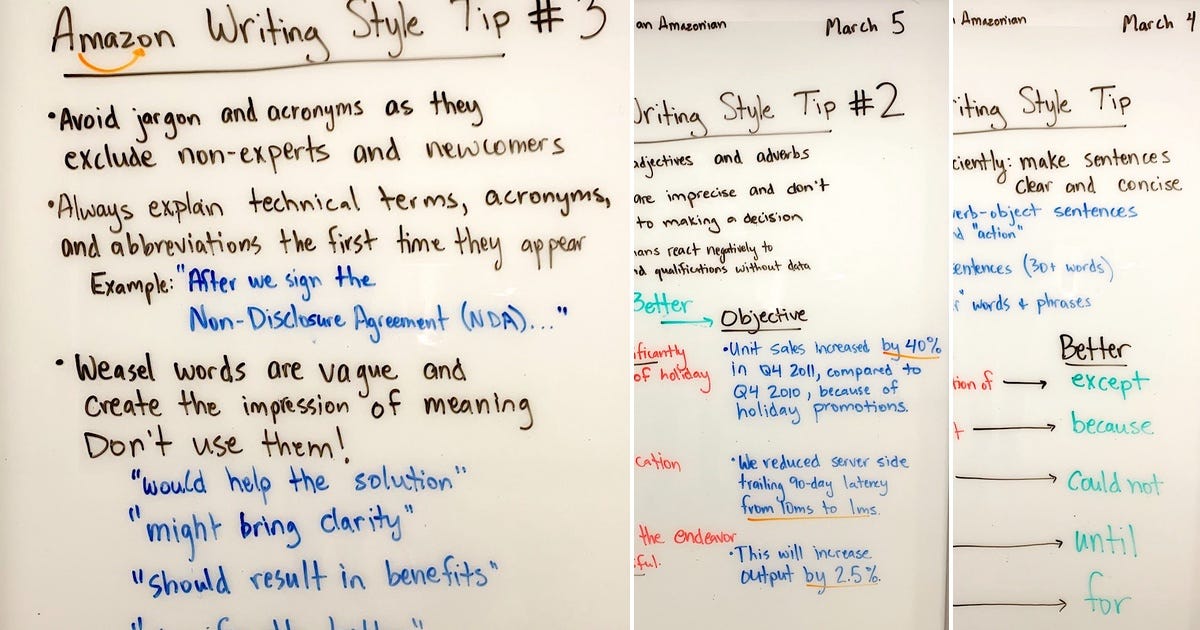 Amazon Writing Style Tip #3
•Avoid jargon and acronyms as they
exclude non-experts and newcomers
•Always explain technical terms, acronyms,
and abbreviations the first time they appear
Example: "After we sign the
Non-Disclosure Agreement (NDA)..."
•Weasel words are vague and
create the impression of meaning
Don't use them!
"would help the solution"
"might bring clarity"
"should result in benefits"
an Amazonian March 5
Writing Style Tip #2
adjectives and adverbs
are imprecise and don't
to making a decision
ans react negatively to
qualifications without data
Better Objective
ificantly
of holiday
•Unit sales increased by 40%
in Q4 2011, compared to
Q4 2010, because of
holiday promotions.
cation
•We reduced server side
trailing 90-day latency
from 10ms to 1ms.
the endeavor
ful.
•This will increase
output by 2.5%.
Amazonian March 4
iting Style Tip
ciently: make sentences
clear and concise
verb-object sentences
"action"
sentences (30+ words)
words & phrases
Better
tion of except
t because
Could not
until
for